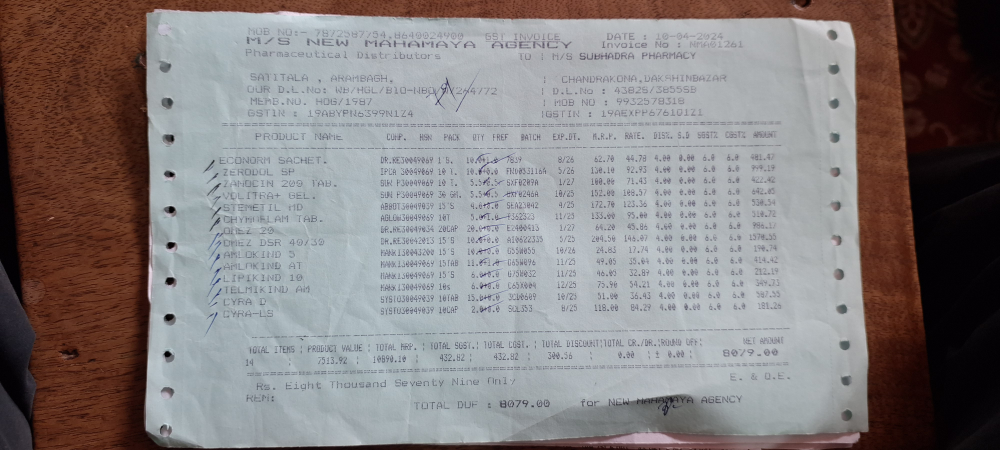 MOB NO:- 7872587754,8640024900 GST INVOICE DATE : 10-04-2024
M/S NEW MAHAMAYA AGENCY Invoice No : NMA01261
Pharmaceutical Distributors TO : M/S SUBHADRA PHARMACY
SATITALA , ARAMBAGH. | CHANDRAKONA,DAKSHINBAZAR
OUR D.L.No: WB/HGL/BIO-NBO/ /264/72 | D.L.No : 4382S/3855SB
MEMB.NO. HOG/1987 | MOB NO : 9932578318
GSTIN : 19ABYFN6399N1Z4 |GSTIN : 19AEXPP6761D1Z1
PRODUCT NAME COMP. HSN PACK QTY FREE BATCH EXP.DT. M.R.P. RATE. DIS% S.D SGST% CGST% AMOUNT
ECONORM SACHET. DR.RE30049069 1 S. 10.0+1.0 7839 8/26 62.70 44.79 4.00 0.00 6.0 6.0 481.47
ZERODOL SP IPCA 30049069 10 T. 10.0+0.0 5/26 130.10 92.93 4.00 0.00 6.0 6.0 999.19
ZANOCIN 200 TAB. SUN P30049069 10 T. 5.5+0.5 SXF0209A 1/27 100.00 71.43 4.00 0.00 6.0 6.0 422.42
VOLITRA+ GEL. SUN P30049069 30 GM. 5.5+0.5 152.00 108.57 4.00 0.00 6.0 6.0 642.05
STEMETIL MD ABBOT30049039 15'S 4.0+0.0 SEA23042 4/25 172.70 123.36 4.00 0.00 6.0 6.0 530.54
CHYMOFLAM TAB. 30049069 10T 5.0+1.0 11/25 133.00 95.00 4.00 0.00 6.0 6.0 510.72
OMEZ 20 DR.RE30049034 20CAP 20.0+0.0 E2400413 1/27 64.20 45.86 4.00 0.00 6.0 6.0 986.17
OMEZ DSR 40/30 DR.RE30042013 15'S 10.0+0.0 5/25 204.50 146.07 4.00 0.00 6.0 6.0 1570.55
AMLOKIND 5 MANKI30043200 15'S 10.0+0.0 10/26 24.83 17.74 4.00 0.00 6.0 6.0 190.74
AMLOKIND AT MANKI30049069 15TAB 11.0+1.0 11/25 49.05 35.04 4.00 0.00 6.0 6.0 414.42
LIPIKIND 10 MANKI30049069 15'S 6.0+0.0 11/25 46.05 32.89 4.00 0.00 6.0 6.0 212.19
TELMIKIND AM MANKI30049069 10s 6.0+0.0 12/25 75.90 54.21 4.00 0.00 6.0 6.0 349.73
CYRA D SYSTO30049039 10TAB 15.0+0.0 SCD0609 10/25 51.00 36.43 4.00 0.00 6.0 6.0 587.55
CYRA-LS SYSTO30049039 10CAP 2.0+0.0 SCL353 8/25 118.00 84.29 4.00 0.00 6.0 6.0 181.26
TOTAL ITEMS | PRODUCT VALUE | TOTAL MRP. | TOTAL SGST.| TOTAL CGST. | TOTAL DISCOUNT|TOTAL CR./DR.|ROUND OFF| NET AMOUNT
14 7513.92 | 10890.10 | 432.82 | 432.82 | 300.56 | 0.00 | ± 0.00 | 8079.00
Rs. Eight Thousand Seventy Nine Only E. & O.E.
REM:
TOTAL DUE : 8079.00 for NEW MAHAMAYA AGENCY